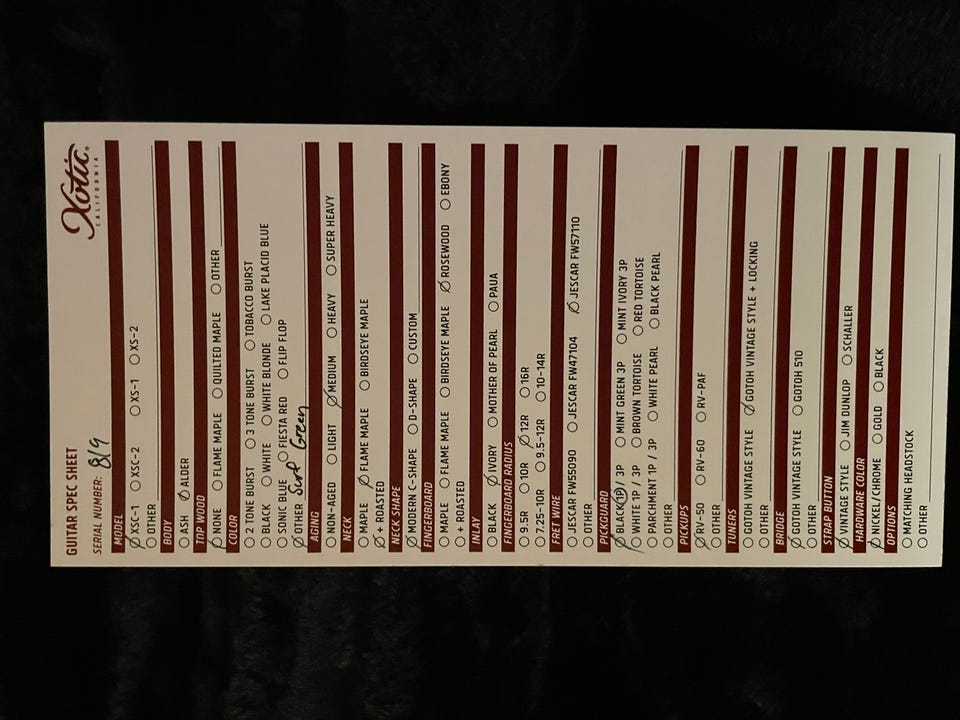 GUITAR SPEC SHEET
Xotic®
CALIFORNIA
SERIAL NUMBER: 819
MODEL
XSC-1 XSC-2 XS-1 XS-2
OTHER
BODY
ASH ALDER
TOP WOOD
NONE FLAME MAPLE QUILTED MAPLE OTHER
COLOR
2 TONE BURST 3 TONE BURST TOBACCO BURST
BLACK WHITE WHITE BLONDE LAKE PLACID BLUE
SONIC BLUE FIESTA RED FLIP FLOP
OTHER Surf Green
AGING
NON-AGED LIGHT MEDIUM HEAVY SUPER HEAVY
NECK
MAPLE FLAME MAPLE BIRDSEYE MAPLE
+ ROASTED
NECK SHAPE
MODERN C-SHAPE D-SHAPE CUSTOM
FINGERBOARD
MAPLE FLAME MAPLE BIRDSEYE MAPLE ROSEWOOD EBONY
+ ROASTED
INLAY
BLACK IVORY MOTHER OF PEARL PAUA
FINGERBOARD RADIUS
9.5R 10R 12R 16R
7.25-10R 9.5-12R 10-14R
FRET WIRE
JESCAR FW55090 JESCAR FW47104 JESCAR FW57110
OTHER
PICKGUARD
BLACK 1P / 3P MINT GREEN 3P MINT IVORY 3P
WHITE 1P / 3P BROWN TORTOISE RED TORTOISE
PARCHMENT 1P / 3P WHITE PEARL BLACK PEARL
OTHER
PICKUPS
RV-50 RV-60 RV-PAF
OTHER
TUNERS
GOTOH VINTAGE STYLE GOTOH VINTAGE STYLE + LOCKING
OTHER
BRIDGE
GOTOH VINTAGE STYLE GOTOH 510
OTHER
STRAP BUTTON
VINTAGE STYLE JIM DUNLOP SCHALLER
HARDWARE COLOR
NICKEL/CHROME GOLD BLACK
OPTIONS
MATCHING HEADSTOCK
OTHER